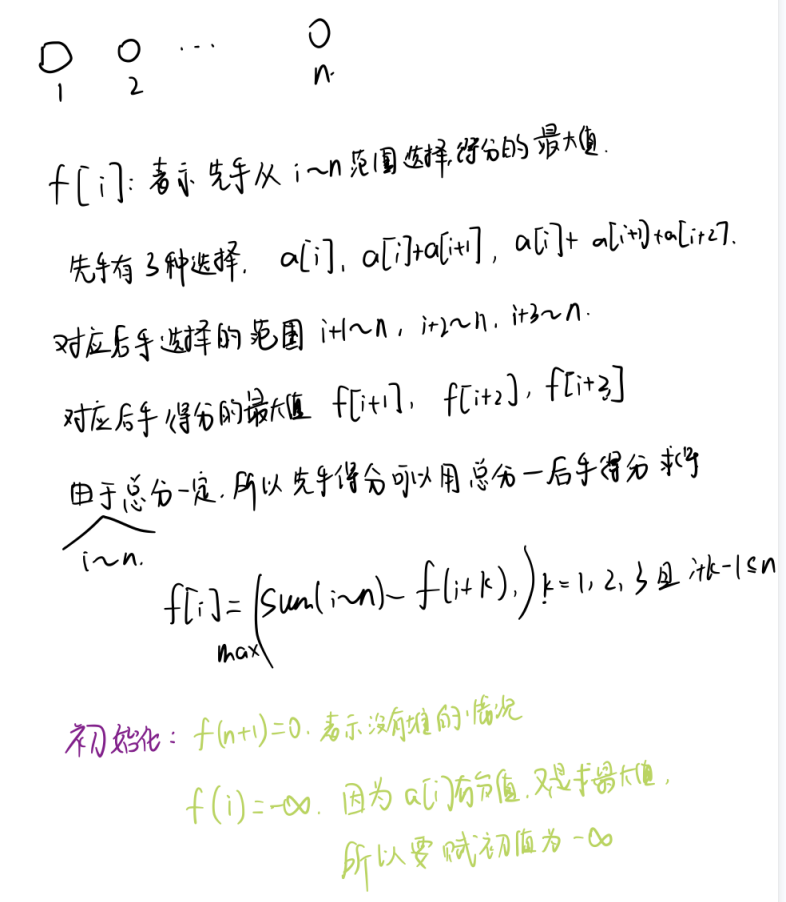 1 2 ... n.
f[i]: 表示先手从 i~n 范围选择,得分的最大值.
先手有3种选择. a[i], a[i]+a[i+1], a[i]+a[i+1]+a[i+2].
对应后手选择的范围 i+1~n, i+2~n, i+3~n.
对应后手得分的最大值 f[i+1], f[i+2], f[i+3]
由于总分一定.所以先手得分可以用总分-后手得分求得
i~n.
f[i]=max(sum(i~n)-f(i+k),) k=1,2,3且 i+k-1≤n
初始化: f(n+1)=0.表示没有堆的情况
f(i)=-∞. 因为a[i]有负值.又是求最大值,
所以要赋初值为-∞